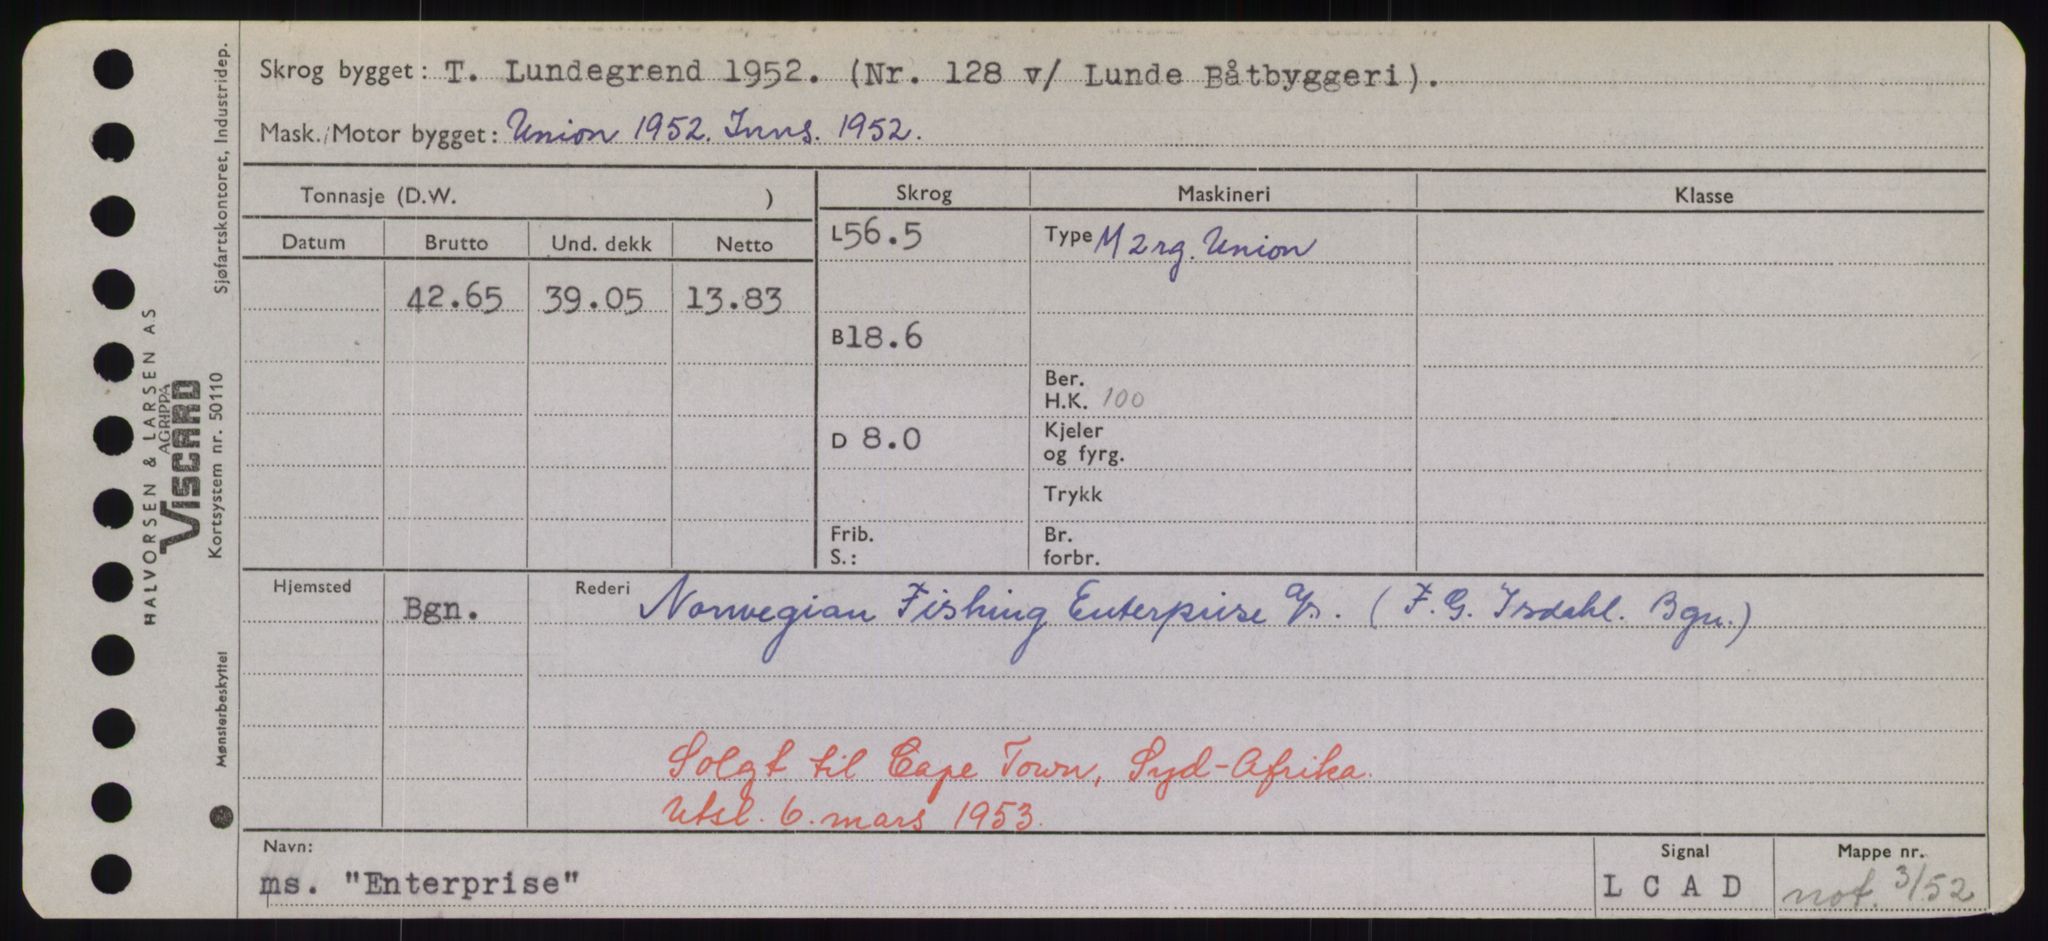 Skrog bygget: T. Lundegrend 1952. (Nr. 128 v/ Lunde Båtbyggeri).
Mask./Motor bygget: Union 1952. Inns. 1952.
Tonnasje (D.W. )
Skrog
Maskineri
Klasse
Datum Brutto Und. dekk Netto
L 56.5
Type M 2 rg. Union
42.65 39.05 13.83
B 18.6
Ber.
H.K. 100
D 8.0
Kjeler
og fyrg.
Trykk
Frib.
S.:
Br.
forbr.
Hjemsted Bgn.
Rederi Norwegian Fishing Enterprise A/s. (F.G. Isdahl. Bgn.)
Solgt til Cape Town, Syd-Afrika.
Utsl. 6. mars 1953.
Navn:
ms. "Enterprise"
Signal
L C A D
Mappe nr.
not. 3/52
HALVORSEN & LARSEN AS
AGRIPPA
VISCARD
Kortsystem nr. 50110
Sjøfartskontoret, Industridep.
Mønsterbeskyttet